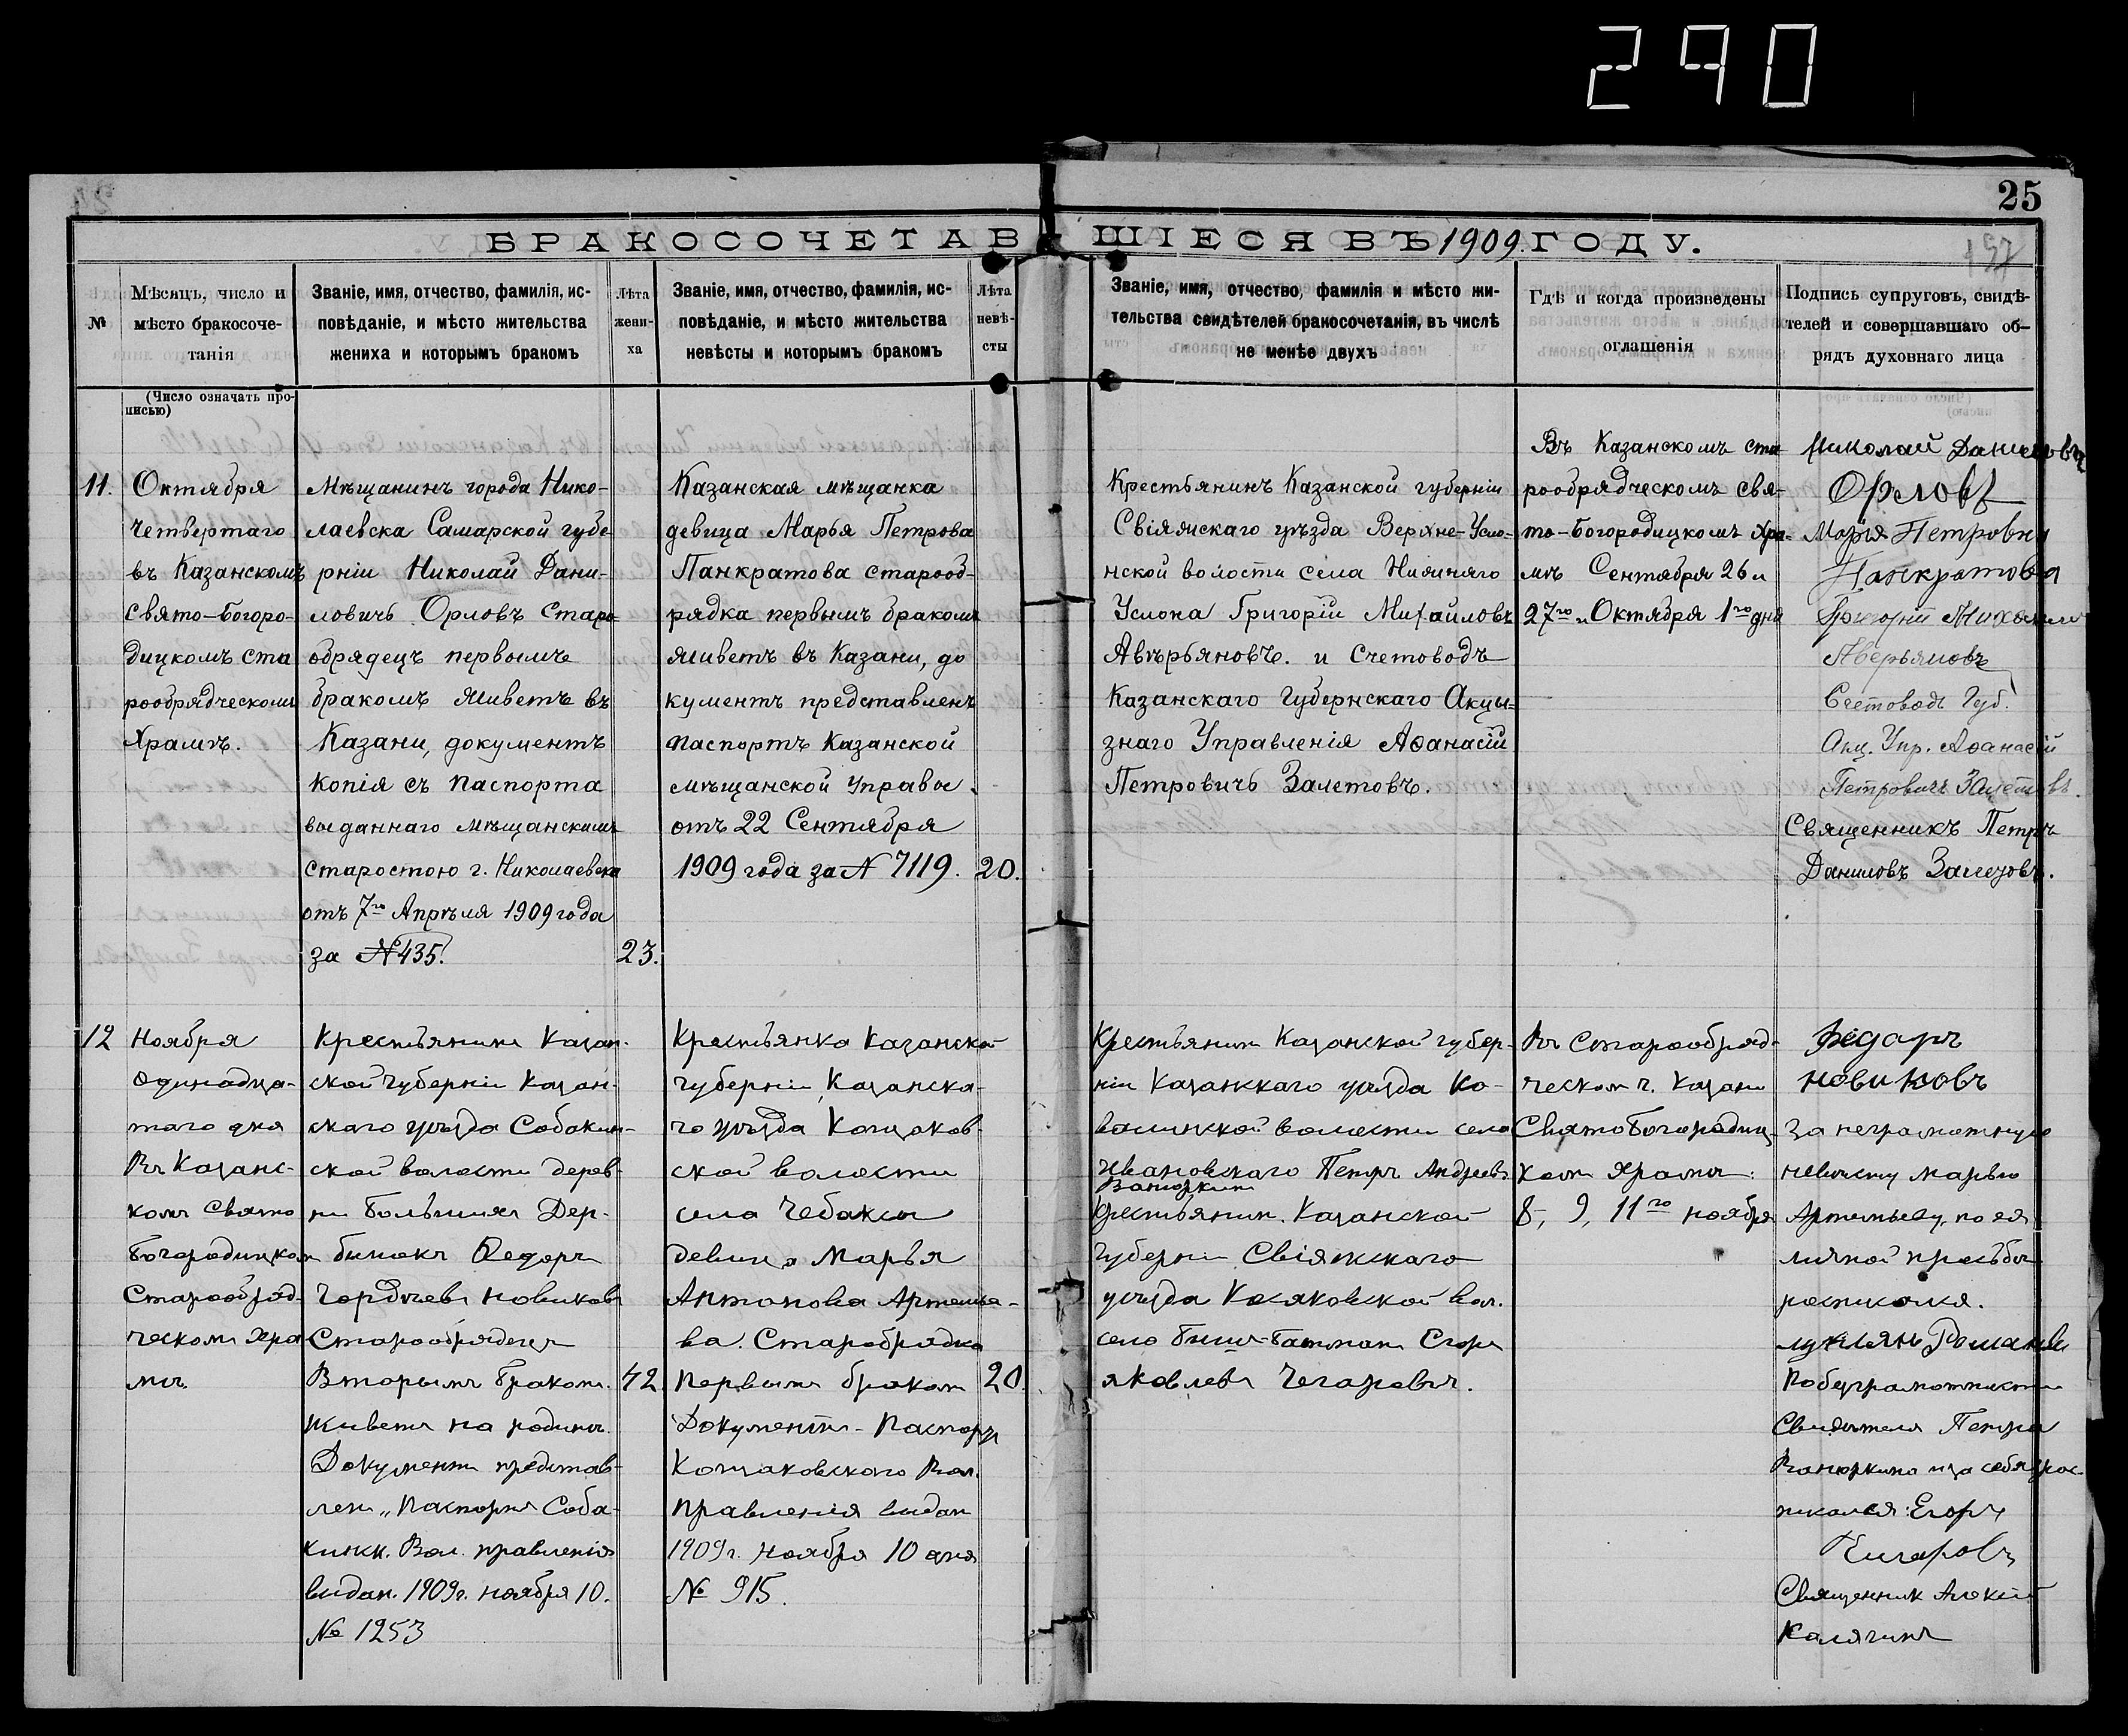 290
25
БРАКОСОЧЕТАВШІЕСЯ ВЪ 1909 ГОДУ.
197
№
Мѣсяцъ, число и
мѣсто бракосоче-
танія
Званіе, имя, отчество, фамилія, ис-
повѣданіе, и мѣсто жительства
жениха и которымъ бракомъ
Лѣта
жени-
ха
Званіе, имя, отчество, фамилія, ис-
повѣданіе, и мѣсто жительства
невѣсты и которымъ бракомъ
Лѣта
невѣ-
сты
Званіе, имя, отчество, фамилія и мѣсто жи-
тельства свидѣтелей бракосочетанія, въ числѣ
не менѣе двухъ
Гдѣ и когда произведены
оглашенія
Подпись супруговъ, свидѣ-
телей и совершавшаго об-
рядъ духовнаго лица
(Число означать про-
писью)
11.
Октября
четвертаго
въ Казанскомъ
Свято-Богоро-
дицкомъ ста
рообрядческомъ
Храмѣ.
Мѣщанинъ города Нико-
лаевска Самарской губе-
рніи Николай Дани-
ловичъ Орловъ Старо-
обрядецъ первымъ
бракомъ живетъ въ
Казани, документъ
копія съ паспорта
выданнаго мѣщанскимъ
старостою г. Николаевска
отъ 7го Апрѣля 1909 года
за № 435.
23.
Казанская мѣщанка
девица Марья Петрова
Панкратова старооб-
рядка первымъ бракомъ
живетъ въ Казани, до
кументъ представленъ
паспортъ Казанской
мѣщанской Управы
отъ 22 Сентября
1909 года за № 7119.
20.
Крестьянинъ Казанской губерніи
Свіяжскаго уѣзда Верхне-Усло-
нской волости села Нижняго
Услона Григорій Михайловъ
Авѣрьяновъ. и Счетоводъ
Казанскаго Губернскаго Акцы-
знаго Управленія Аѳанасій
Петровичъ Залетовъ.
Въ Казанскомъ ста
рообрядческомъ Свя-
то-Богородицкомъ Хра-
мѣ Сентября 26 и
27го и Октября 1го дня
Николай Даниловъ
Орловъ
Марья Петровна
Панкратова
Григорий Михайлов
Аверьяновъ
Счетоводъ Губ.
Акц. Упр. Аѳанасій
Петровичъ Залетовъ.
Священникъ Петръ
Даниловъ Залетовъ.
12
Ноября
одинадца-
таго дня
Въ Казанс-
комъ Свято
Богородицком
Старообряд-
ческомъ Хра
мѣ.
Крестьянинъ Казан-
ской губерніи Казан-
скаго уѣзда Собакин-
ской волости дерев-
ни Большихъ Дер-
бишекъ Ѳедоръ
Гордѣевъ Новиковъ
Старообрядецъ
Вторымъ бракомъ.
живетъ на родинѣ.
Документъ представ-
ленъ „Паспортъ Соба-
кинск. Вол. правленія
выдан. 1909 г. ноября 10.
№ 1253
42.
Крестьянка Казанской
губерніи, Казанска-
го уѣзда Кощаков-
ской волости
села Чебаксы
девица Марья
Антонова Артемье-
ва. Старобрядка
Первымъ бракомъ
Документъ - Паспортъ
Кощаковскаго Вол.
Правленія выдан
1909 г. Ноября 10 дня
№ 915.
20.
Крестьянинъ Казанской губер-
ніи Казанскаго уѣзда Ко-
валинской волости села
Ивановскаго Петръ Андреевъ
Ванюркинъ
Крестьянин. Казанской
Губерніи Свіяжскаго
уѣзда Косяковской вол.
село Бишь-Батманъ Егоръ
Яковлевъ Чегаровъ.
Въ Старообряд-
ческом г. Казани
Святобогородиц-
комъ Храмѣ:
8, 9, 11го ноября
Федаръ
Новиковъ
За неграмотную
невѣсту Марью
Артемьеву, по ея
личной просьбѣ
росписался.
Лукиянъ Романовъ
По безграмотности
Свидѣтеля Петра
Ванюркина и за себя рос-
писался: Егоръ
Чигаровъ
Священник Алексій
Калягинъ